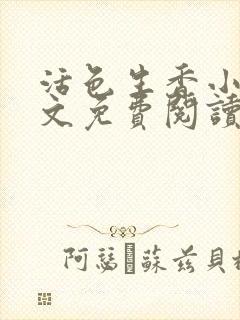 活色生香小
文免費閱讀
阿瑟·蘇茲貝